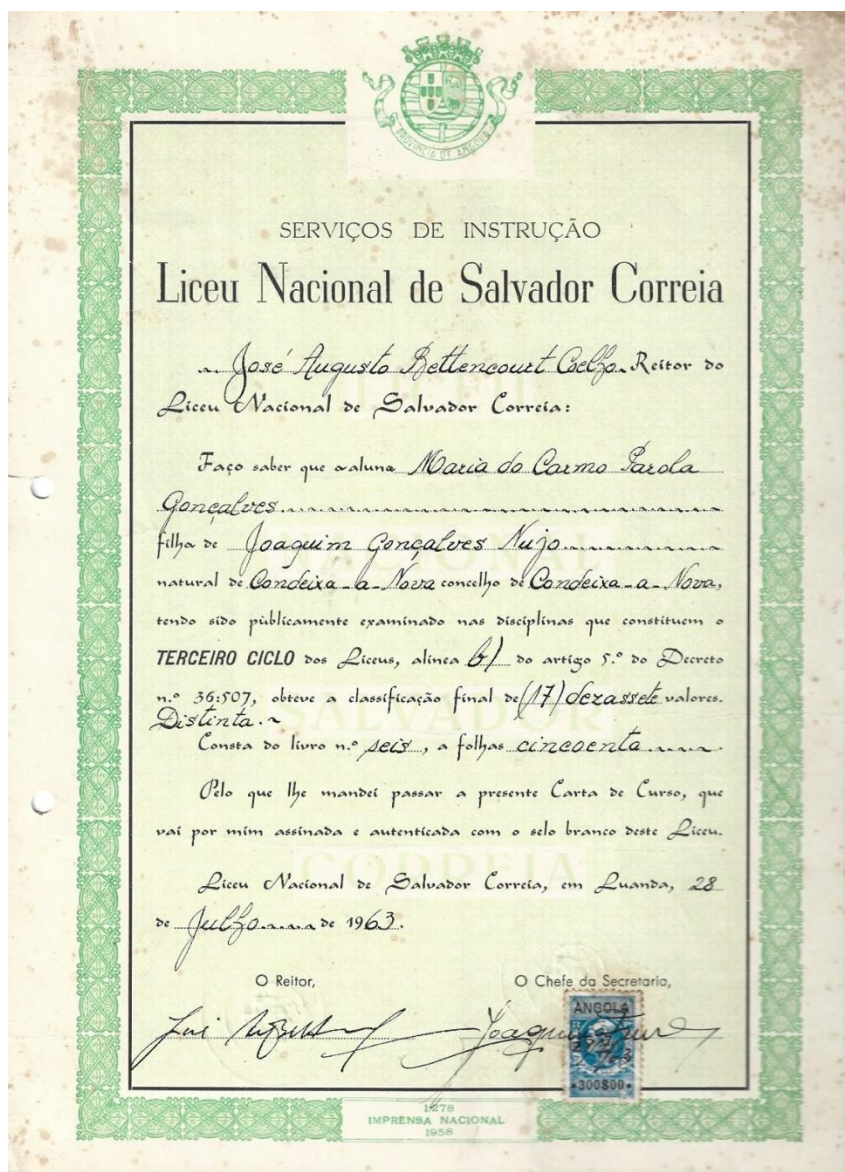 PROVÍNCIA DE ANGOLA
SERVIÇOS DE INSTRUÇÃO
Liceu Nacional de Salvador Correia
José Augusto Bettencourt Coelho Reitor do
Liceu Nacional de Salvador Correia:
Faço saber que a aluna Maria do Carmo Parola
Gonçalves
filha de Joaquim Gonçalves Nujo
natural de Condeixa-a-Nova concelho de Condeixa-a-Nova,
tendo sido pùblicamente examinado nas disciplinas que constituem o
TERCEIRO CICLO dos Liceus, alínea b) do artigo 5.º do Decreto
n.º 36:507, obteve a classificação final de (17) dezassete valores.
Distinta.
Consta do livro n.º seis, a folhas cincoenta.
Pelo que lhe mandei passar a presente Carta de Curso, que
vai por mim assinada e autenticada com o selo branco deste Liceu.
Liceu Nacional de Salvador Correia, em Luanda, 28
de Julho de 1963.
O Reitor, O Chefe da Secretaria,
ANGOLA
300$00
1:278
IMPRENSA NACIONAL
1958
NACIONAL
SALVADOR
CORREIA